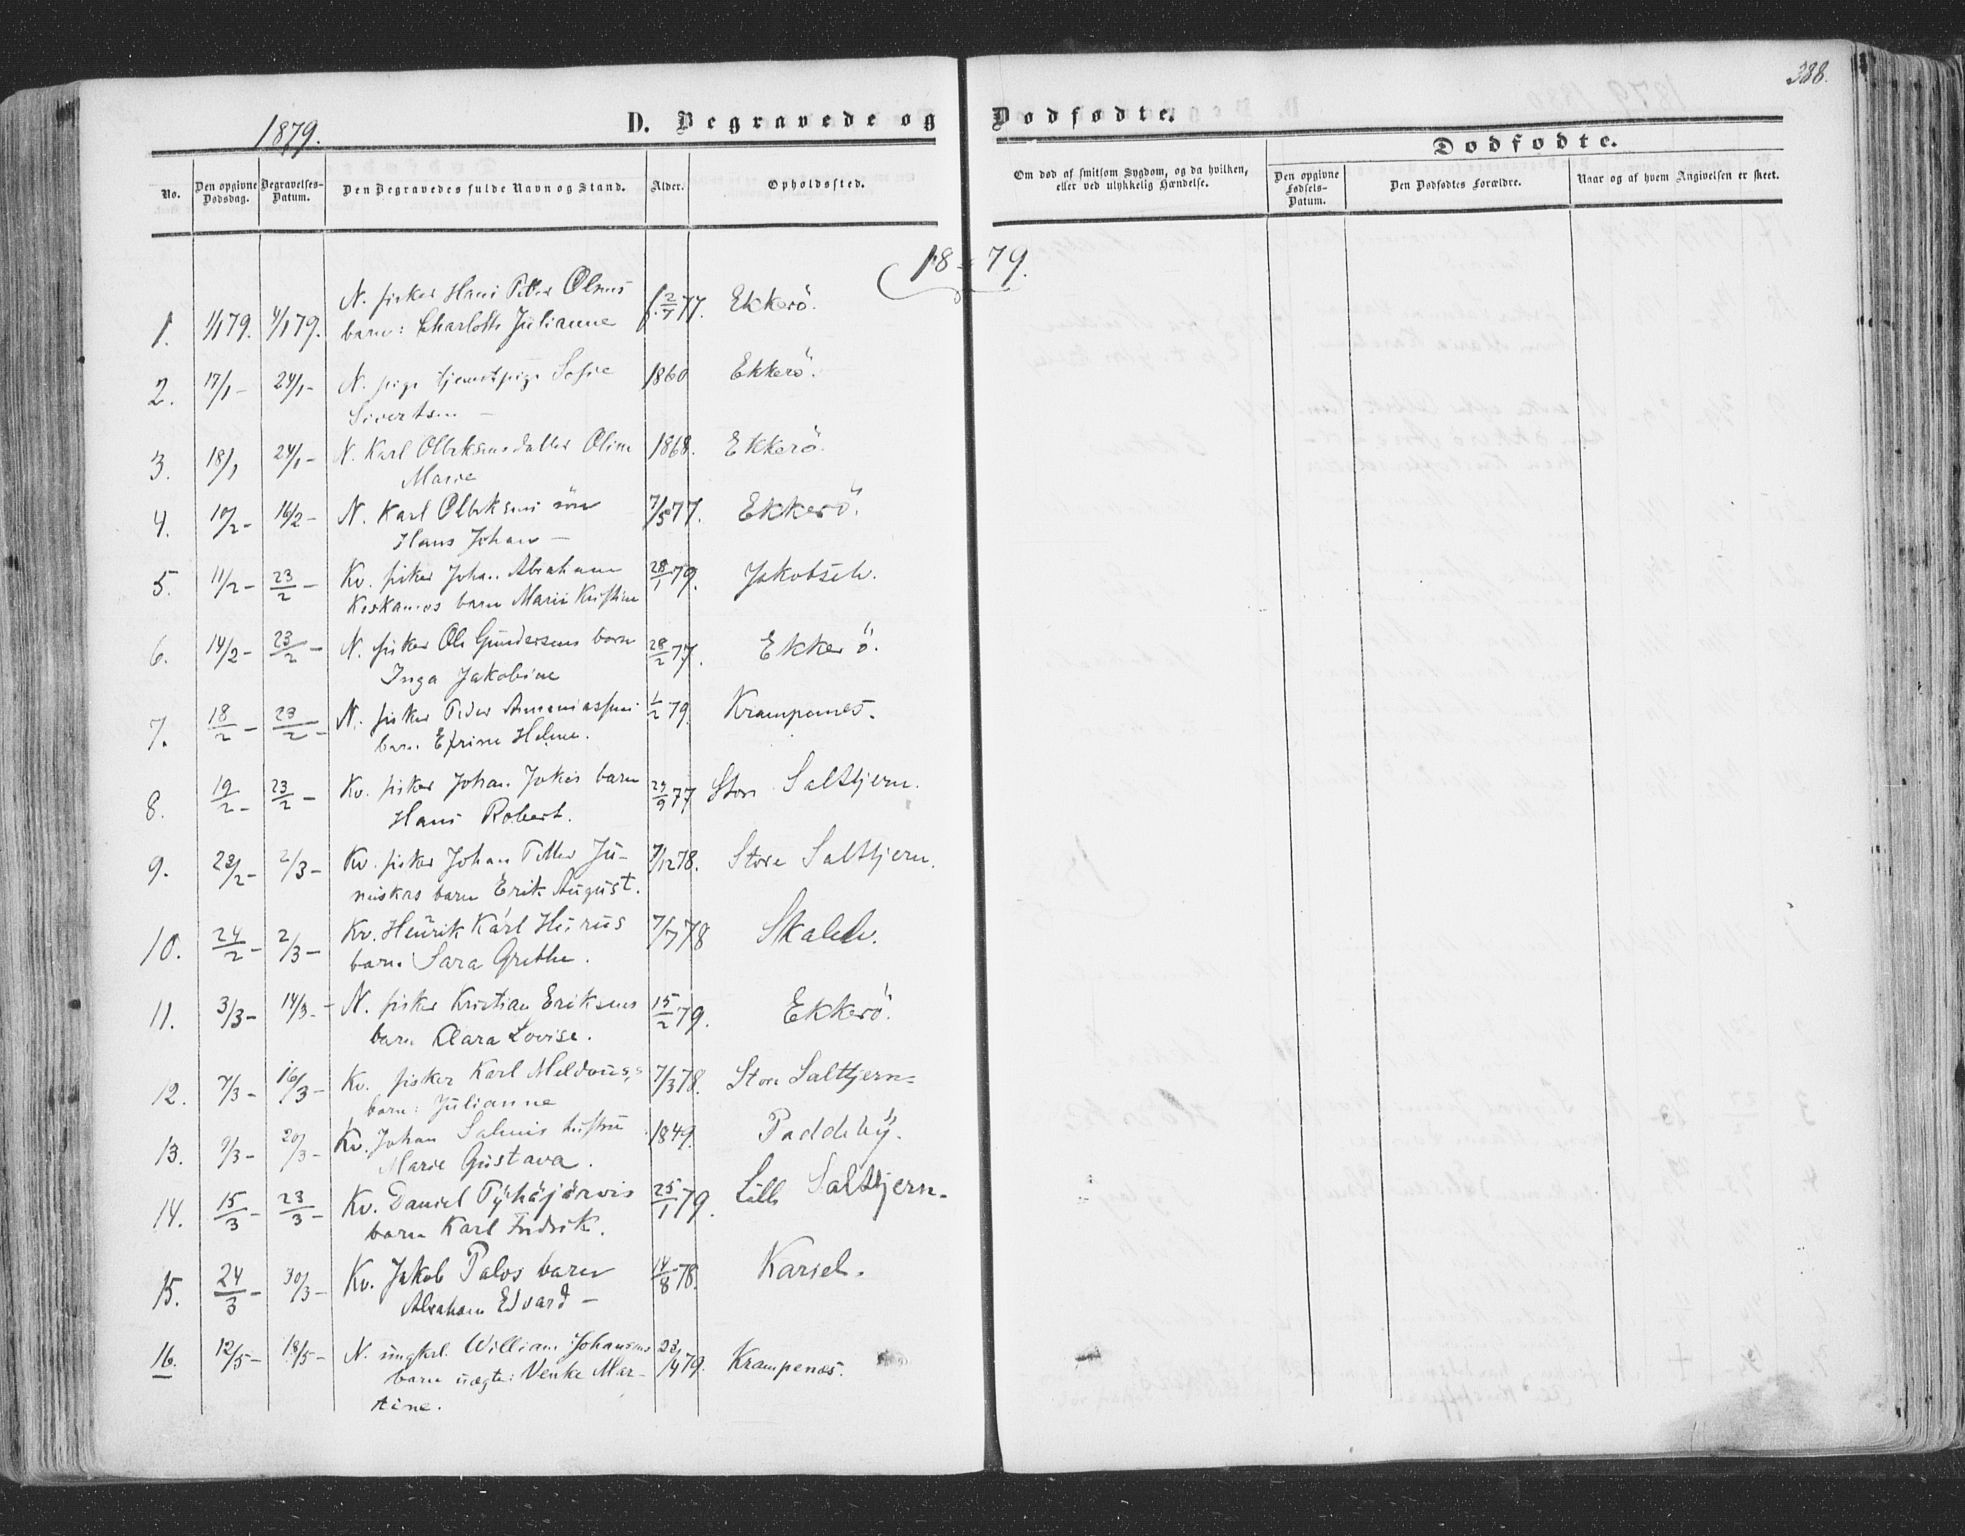 388.
1879.
D. Begravede og Dødfødte.
Dødfødte.
No.
Den opgivne Dødsdag.
Begravelses-Datum.
Den Begravedes fulde Navn og Stand.
Alder.
Opholdssted.
Om død af smitsom Sygdom, og da hvilken, eller ved ulykkelig Hændelse.
Den opgivne Fødsels-Datum.
Den Dødfødtes Forældre.
Naar og af hvem Angivelsen er skeet.
1879.
1. 1/1 79. 4/1 79. N. fisker Hans Petter Olsens f. 2/7 77. Ekkerö.
barn: Charlotte Julianne
2. 17/1 - 24/1 - N. pige tjenestpige Sofie 1860 Ekkerö.
Sivertsen -
3. 18/1 24/1 - N. Karl Olbeksens datter Oline 1868. Ekkerö.
Marie
4. 10/2 - 16/2 - N. Karl Olbeksens sön 7/5 77. Ekkerö.
Hans Johan -
5. 11/2 - 23/2 - Kv. fisker Johan Abraham 28/1 79. Jakobselv.
barn Marie Kristine
6. 14/2 - 23/2 - N. fisker Ole Gundersens barn 28/2 77. Ekkerö.
Inga Jakobine
7. 18/2 - 23/2 - N. fisker Peder 1/2 79. Krampenes.
barn Efrine Helene.
8. 19/2 - 23/2 - Kv. fisker Johan Jokis barn 29/9 77 Store Saltfjern.
Hans Robert.
9. 23/2 - 2/3 - Kv. fisker Johan Petter Ju- 7/12 78. Store Saltfjern.
niskas barn Erik August.
10. 24/2 - 2/3 - Kv. Henrik Karl 7/7 78 Skalelv.
barn Sara Grethe.
11. 3/3 - 14/3 - N. fisker Kristian Eriksens 15/2 79. Ekkerö.
barn Clara Lovise.
12. 7/3 - 16/3 - Kv. fisker Karl 7/3 78. Store Saltfjern -
barn: Julianne
13. 9/3 - 20/3 - Kv. Johan Salmis hustru 1849. Paddeby.
Marie Gustava.
14. 15/3 - 23/3 - Kv. Daniel Pyhäjärvis 25/1 79. Lille Saltfjern -
barn Karl Fredrik.
15. 24/3 - 30/3 - Kv. Jakob Palos barn 14/8 78. Kariel.
Abraham Edvard -
16. 12/5 - 18/5 - N. ungkrl. William Johansens 23/4 79. Krampenæs.
barn uægte: Venke Mar-
tine.